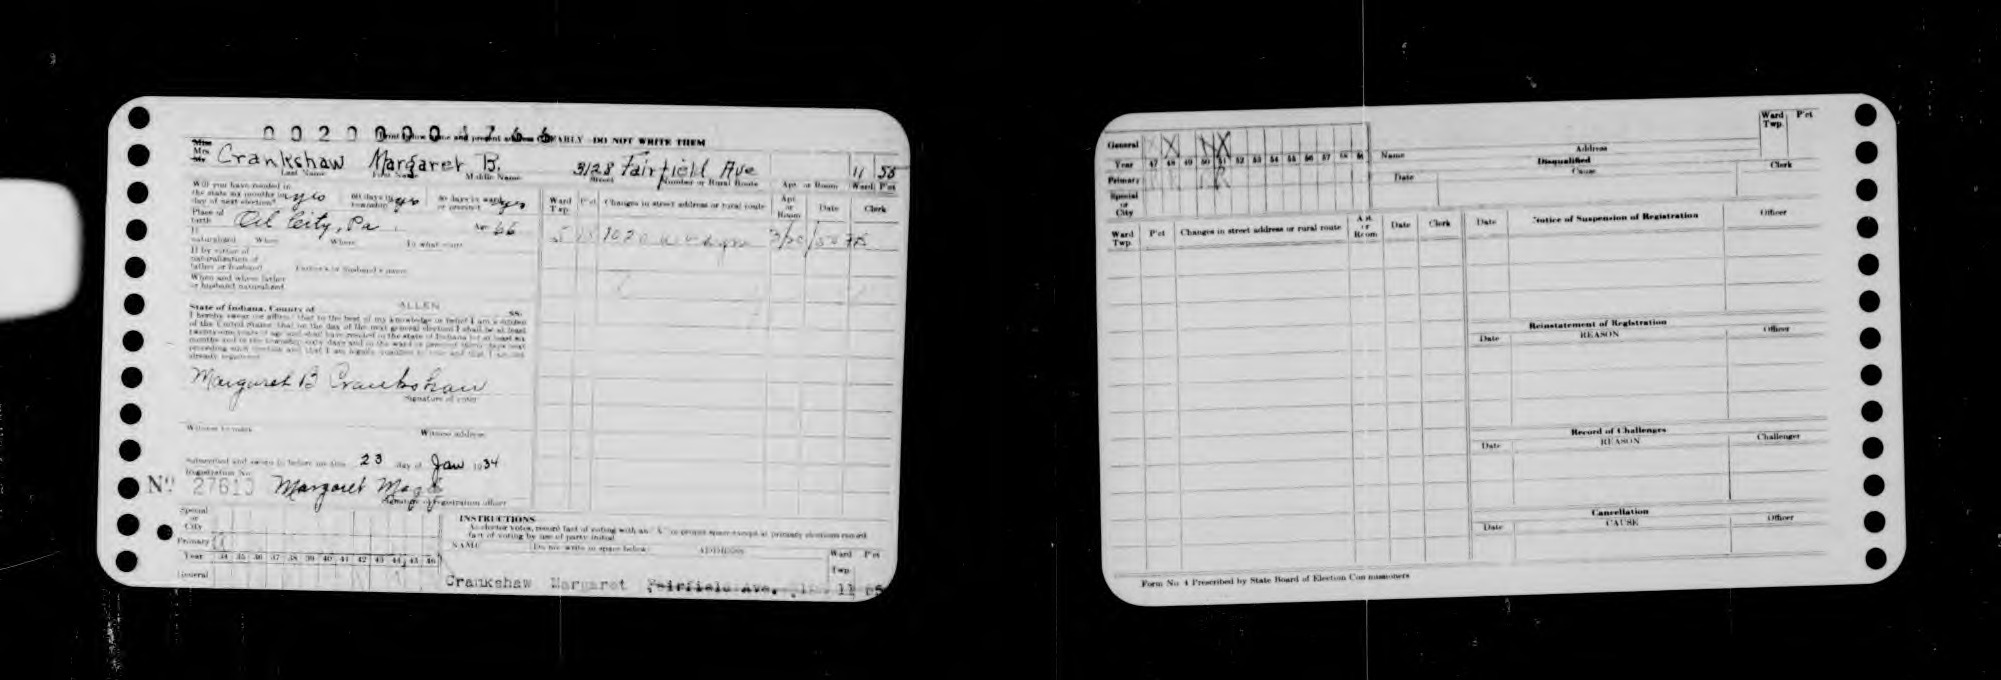 EARLY - DO NOT WRITE THEM
Miss
Mrs
Mr
Crankshaw Margaret B. 3128 Fairfield Ave 11 55
Last Name First Name Middle Name Street Number or Rural Route Apt. or Room Ward P'ct
Will you have resided in
the state six months by yes 60 days in township yes 30 days in ward or precinct yes
day of next election?
Place of birth Oil City, Pa. Age 66
If naturalized When Where To what court
If by virtue of
naturalization of
father or husband Father's or husband's name
When and where father
or husband naturalized
State of Indiana, County of ALLEN ss.
I hereby swear (or affirm) that to the best of my knowledge or belief I am a citizen
of the United States; that on the day of the next general election I shall be at least
twenty-one years of age and shall have resided in the state of Indiana for at least six
months and in the township sixty days and in the ward or precinct thirty days next
preceding such election and that I am legally qualified to vote and that I am not
already registered.
Margaret B Crankshaw
Signature of voter
Witness to mark Witness address
Subscribed and sworn to before me this 23 day of Jan 1934
Registration No.
No. Margaret
Signature of registration officer
Ward Twp. P'ct Changes in street address or rural route Apt. or Room Date Clerk
Special or City
Primary
Year 34 35 36 37 38 39 40 41 42 43 44 45 46
General
INSTRUCTIONS
As elector votes, record fact of voting with an "X" in proper space except at primary elections record
fact of voting by use of party initial.
NAME Do not write in space below ADDRESS Ward Twp. P'ct
Crankshaw Margaret Fairfield Ave. 11 55
General
Year 47 48 49 50 51 52 53 54 55 56 57 58
Primary
Special or City
Name Address Ward Twp. P'ct
Disqualified
Date Cause Clerk
Ward Twp. P'ct Changes in street address or rural route Apt. or Room Date Clerk
Date Notice of Suspension of Registration Officer
Reinstatement of Registration
Date REASON Officer
Record of Challenges
Date REASON Challenger
Cancellation
Date CAUSE Officer
Form No. 4 Prescribed by State Board of Election Commissioners